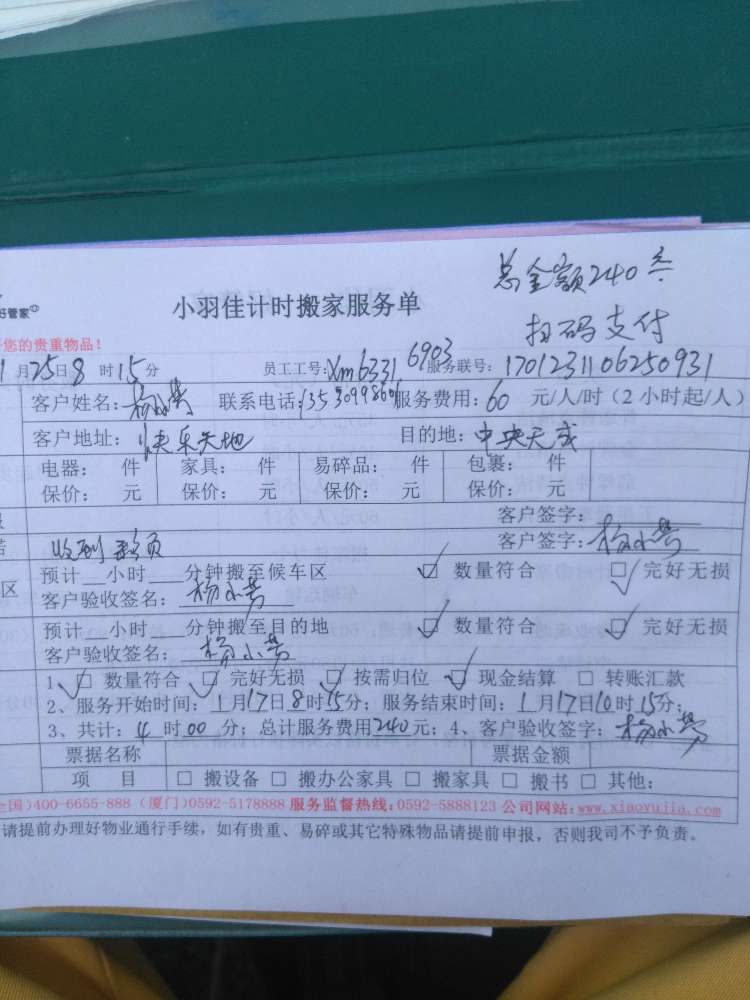 总金额240元
好管家
小羽佳计时搬家服务单
扫码支付
您的贵重物品！
1月25日8时15分 员工工号：xm6331 6903 服务联号：1701231106250931
客户姓名： 联系电话： 服务费用：60 元/人/时（2小时起/人）
客户地址：快乐天地 目的地：中央天成
电器： 件 家具： 件 易碎品： 件 包裹： 件
保价： 元 保价： 元 保价： 元 保价： 元
客户签字：
收到 客户签字：杨小芳
区 预计 小时 分钟搬至候车区 ☑ 数量符合 ☑ 完好无损
客户验收签名：杨小芳
预计 小时 分钟搬至目的地 ☑ 数量符合 ☑ 完好无损
客户验收签名：杨小芳
1、☑ 数量符合 ☑ 完好无损 ☑ 按需归位 ☑ 现金结算 □ 转账汇款
2、服务开始时间：1月17日8时15分；服务结束时间：1月17日10时15分；
3、共计：4时00分；总计服务费用240元；4、客户验收签字：杨小芳
票据名称 票据金额
项 目 □ 搬设备 □ 搬办公家具 □ 搬家具 □ 搬书 □ 其他：
全国）400-6655-888（厦门）0592-5178888 服务监督热线：0592-5888123 公司网站：www.xiaoyujia.com
请提前办理好物业通行手续，如有贵重、易碎或其它特殊物品请提前申报，否则我司不予负责。